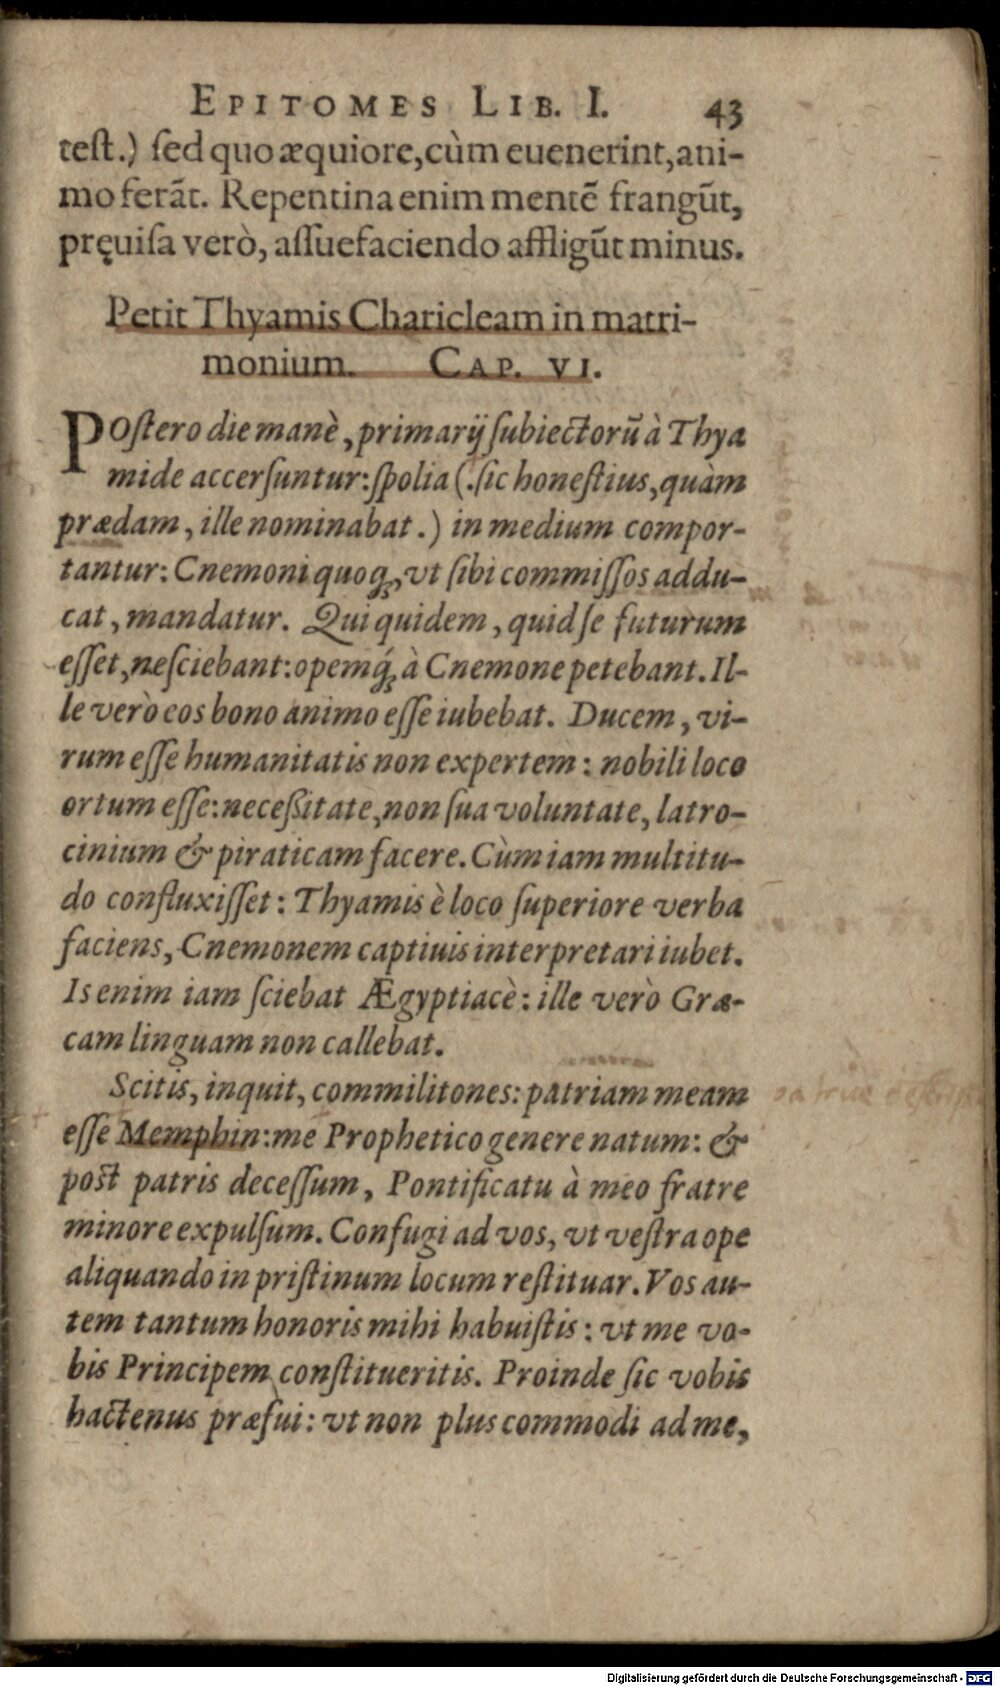 EPITOMES LIB. I. 43
test.) sed quo æquiore, cùm euenerint, ani-
mo ferāt. Repentina enim mentē frangūt,
pręuisa verò, assuefaciendo affligūt minus.
Petit Thyamis Charicleam in matri-
monium. CAP. VI.
POstero die manè, primarij subiectorū à Thya
mide accersuntur: spolia (.sic honestius, quàm
prædam, ille nominabat.) in medium compor-
tantur: Cnemoni quoq;, vt sibi commissos addu-
cat, mandatur. Qui quidem, quid se futurum
esset, nesciebant: opemq́; à Cnemone petebant. Il-
le verò eos bono animo esse iubebat. Ducem, vi-
rum esse humanitatis non expertem: nobili loco
ortum esse: necessitate, non sua voluntate, latro-
cinium & piraticam facere. Cùm iam multitu-
do confluxisset: Thyamis è loco superiore verba
faciens, Cnemonem captiuis interpretari iubet.
Is enim iam sciebat Ægyptiacè: ille verò Græ-
cam linguam non callebat.
Scitis, inquit, commilitones: patriam meam
esse Memphin: me Prophetico genere natum: &
post patris decessum, Pontificatu à meo fratre
minore expulsum. Confugi ad vos, vt vestra ope
aliquando in pristinum locum restituar. Vos au-
tem tantum honoris mihi habuistis: vt me vo-
bis Principem constitueritis. Proinde sic vobis
hactenus præfui: vt non plus commodi ad me,
Digitalisierung gefördert durch die Deutsche Forschungsgemeinschaft - DFG